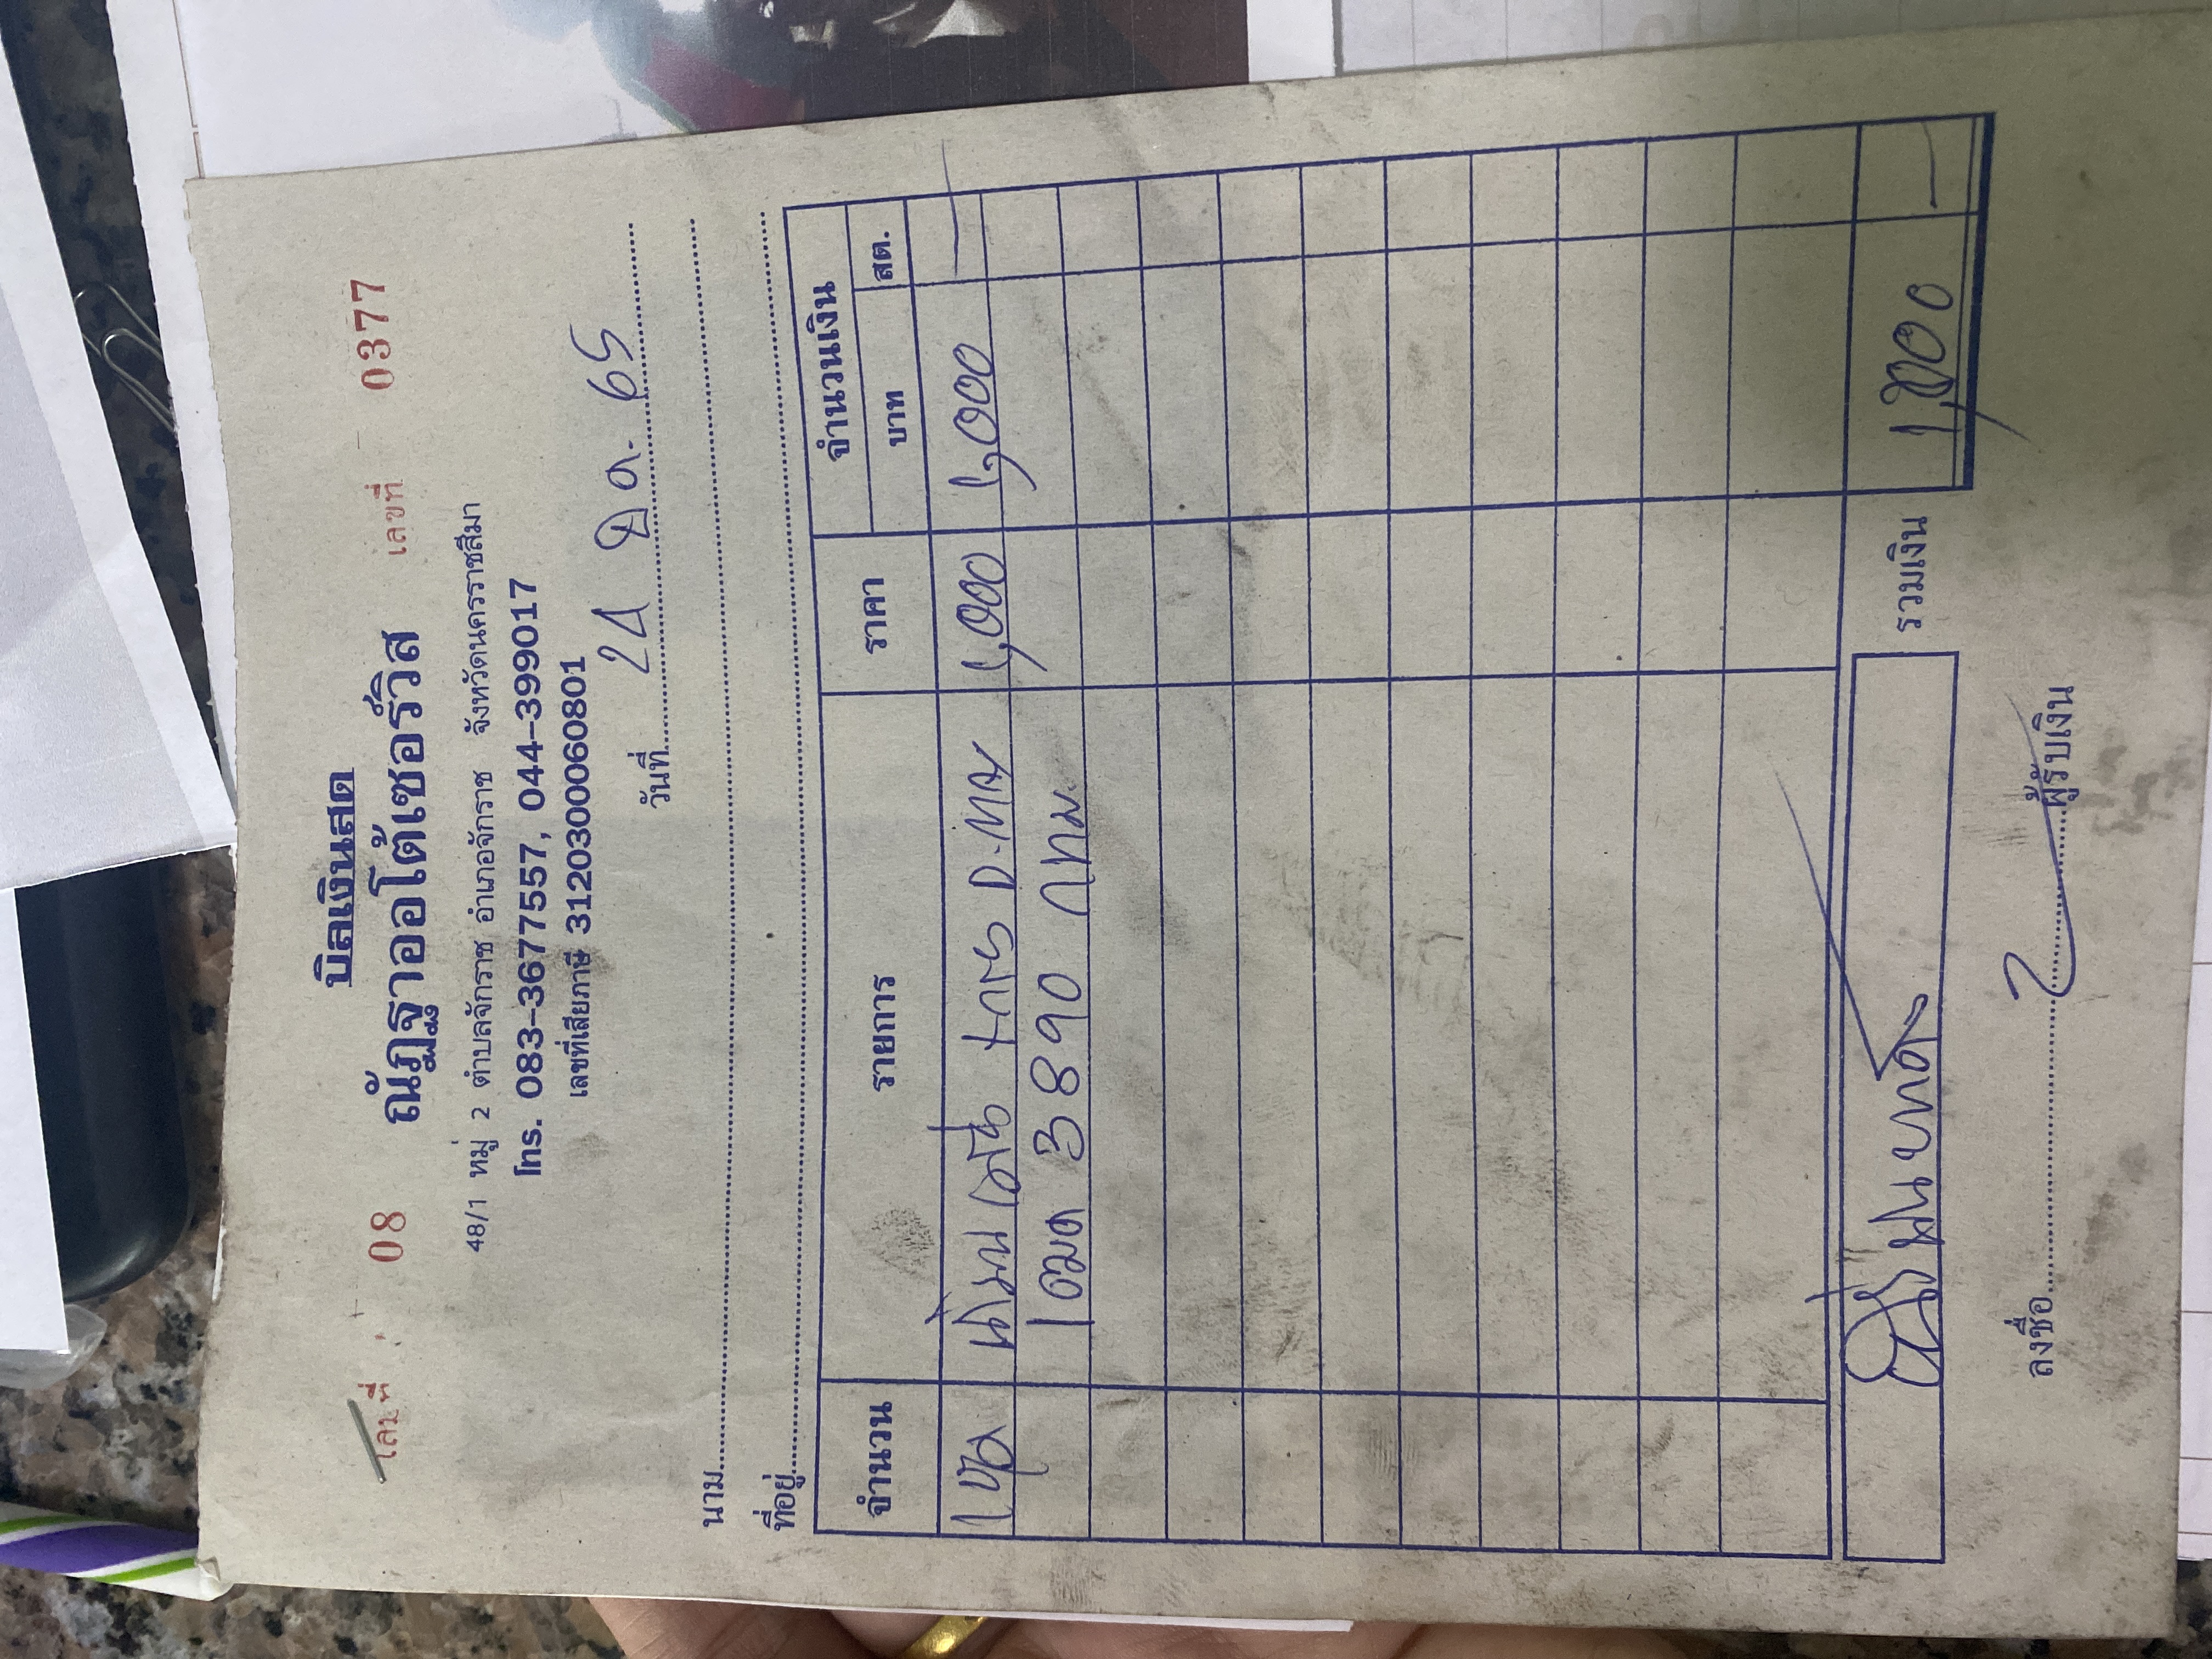 บิลเงินสด
เล่มที่ 08 เลขที่ 0377
ณัฏฐาออโต้เซอร์วิส
48/1 หมู่ 2 ตำบลจักราช อำเภอจักราช จังหวัดนครราชสีมา
โทร. 083-3677557, 044-399017
เลขที่เสียภาษี 3120300060801
วันที่ 24 มี.ค. 65
นาม
ที่อยู่
จำนวน รายการ ราคา จำนวนเงิน
บาท สต.
1 ชุด น้ำมันเครื่อง 1,000 1,000 -
3890 กทม.
รวมเงิน 1,000 -
หนึ่งพันบาท
ลงชื่อ ผู้รับเงิน